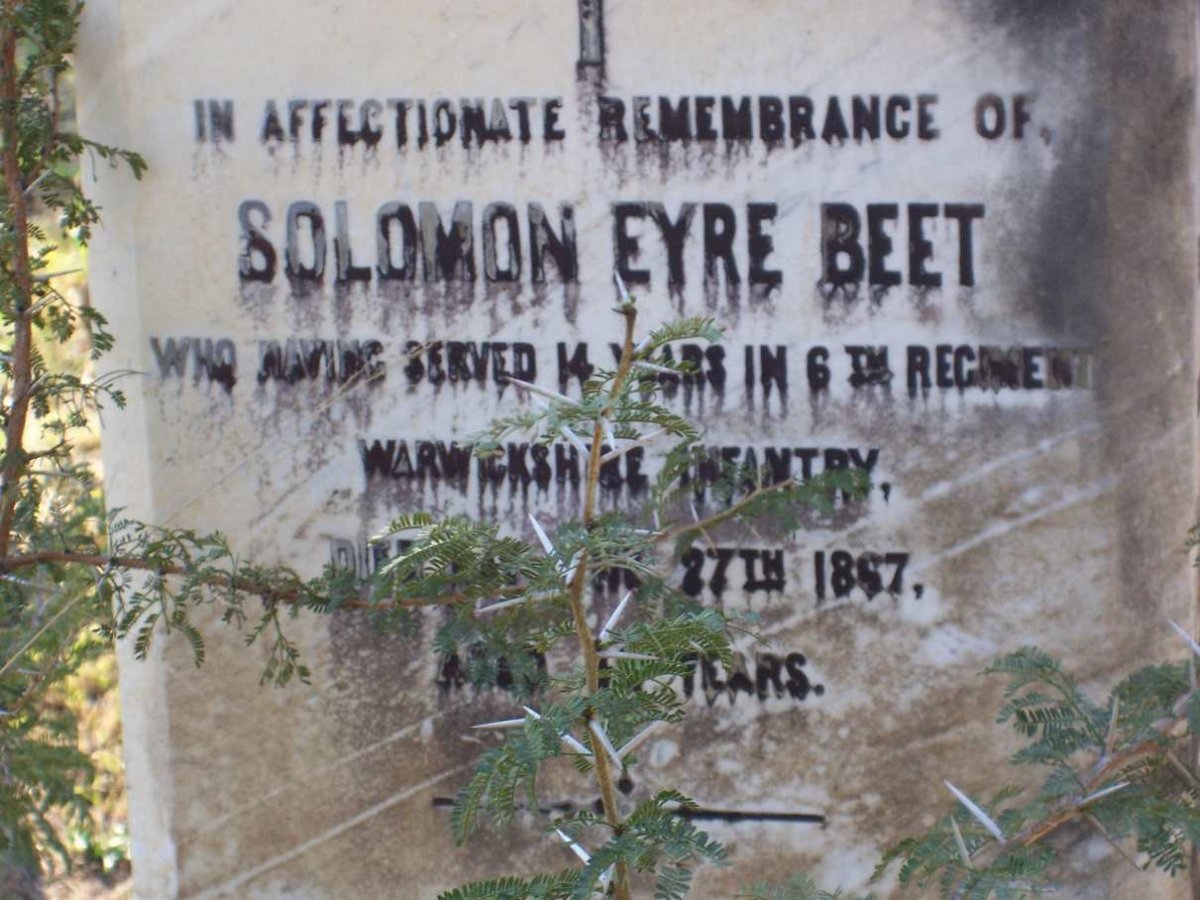 IN AFFECTIONATE REMEMBRANCE OF,
SOLOMON EYRE BEET
WHO HAVING SERVED 14 YEARS IN 6 TH REGIMENT
WARWICKSHIRE INFANTRY,
DIED 27TH 1867,
AGED YEARS.